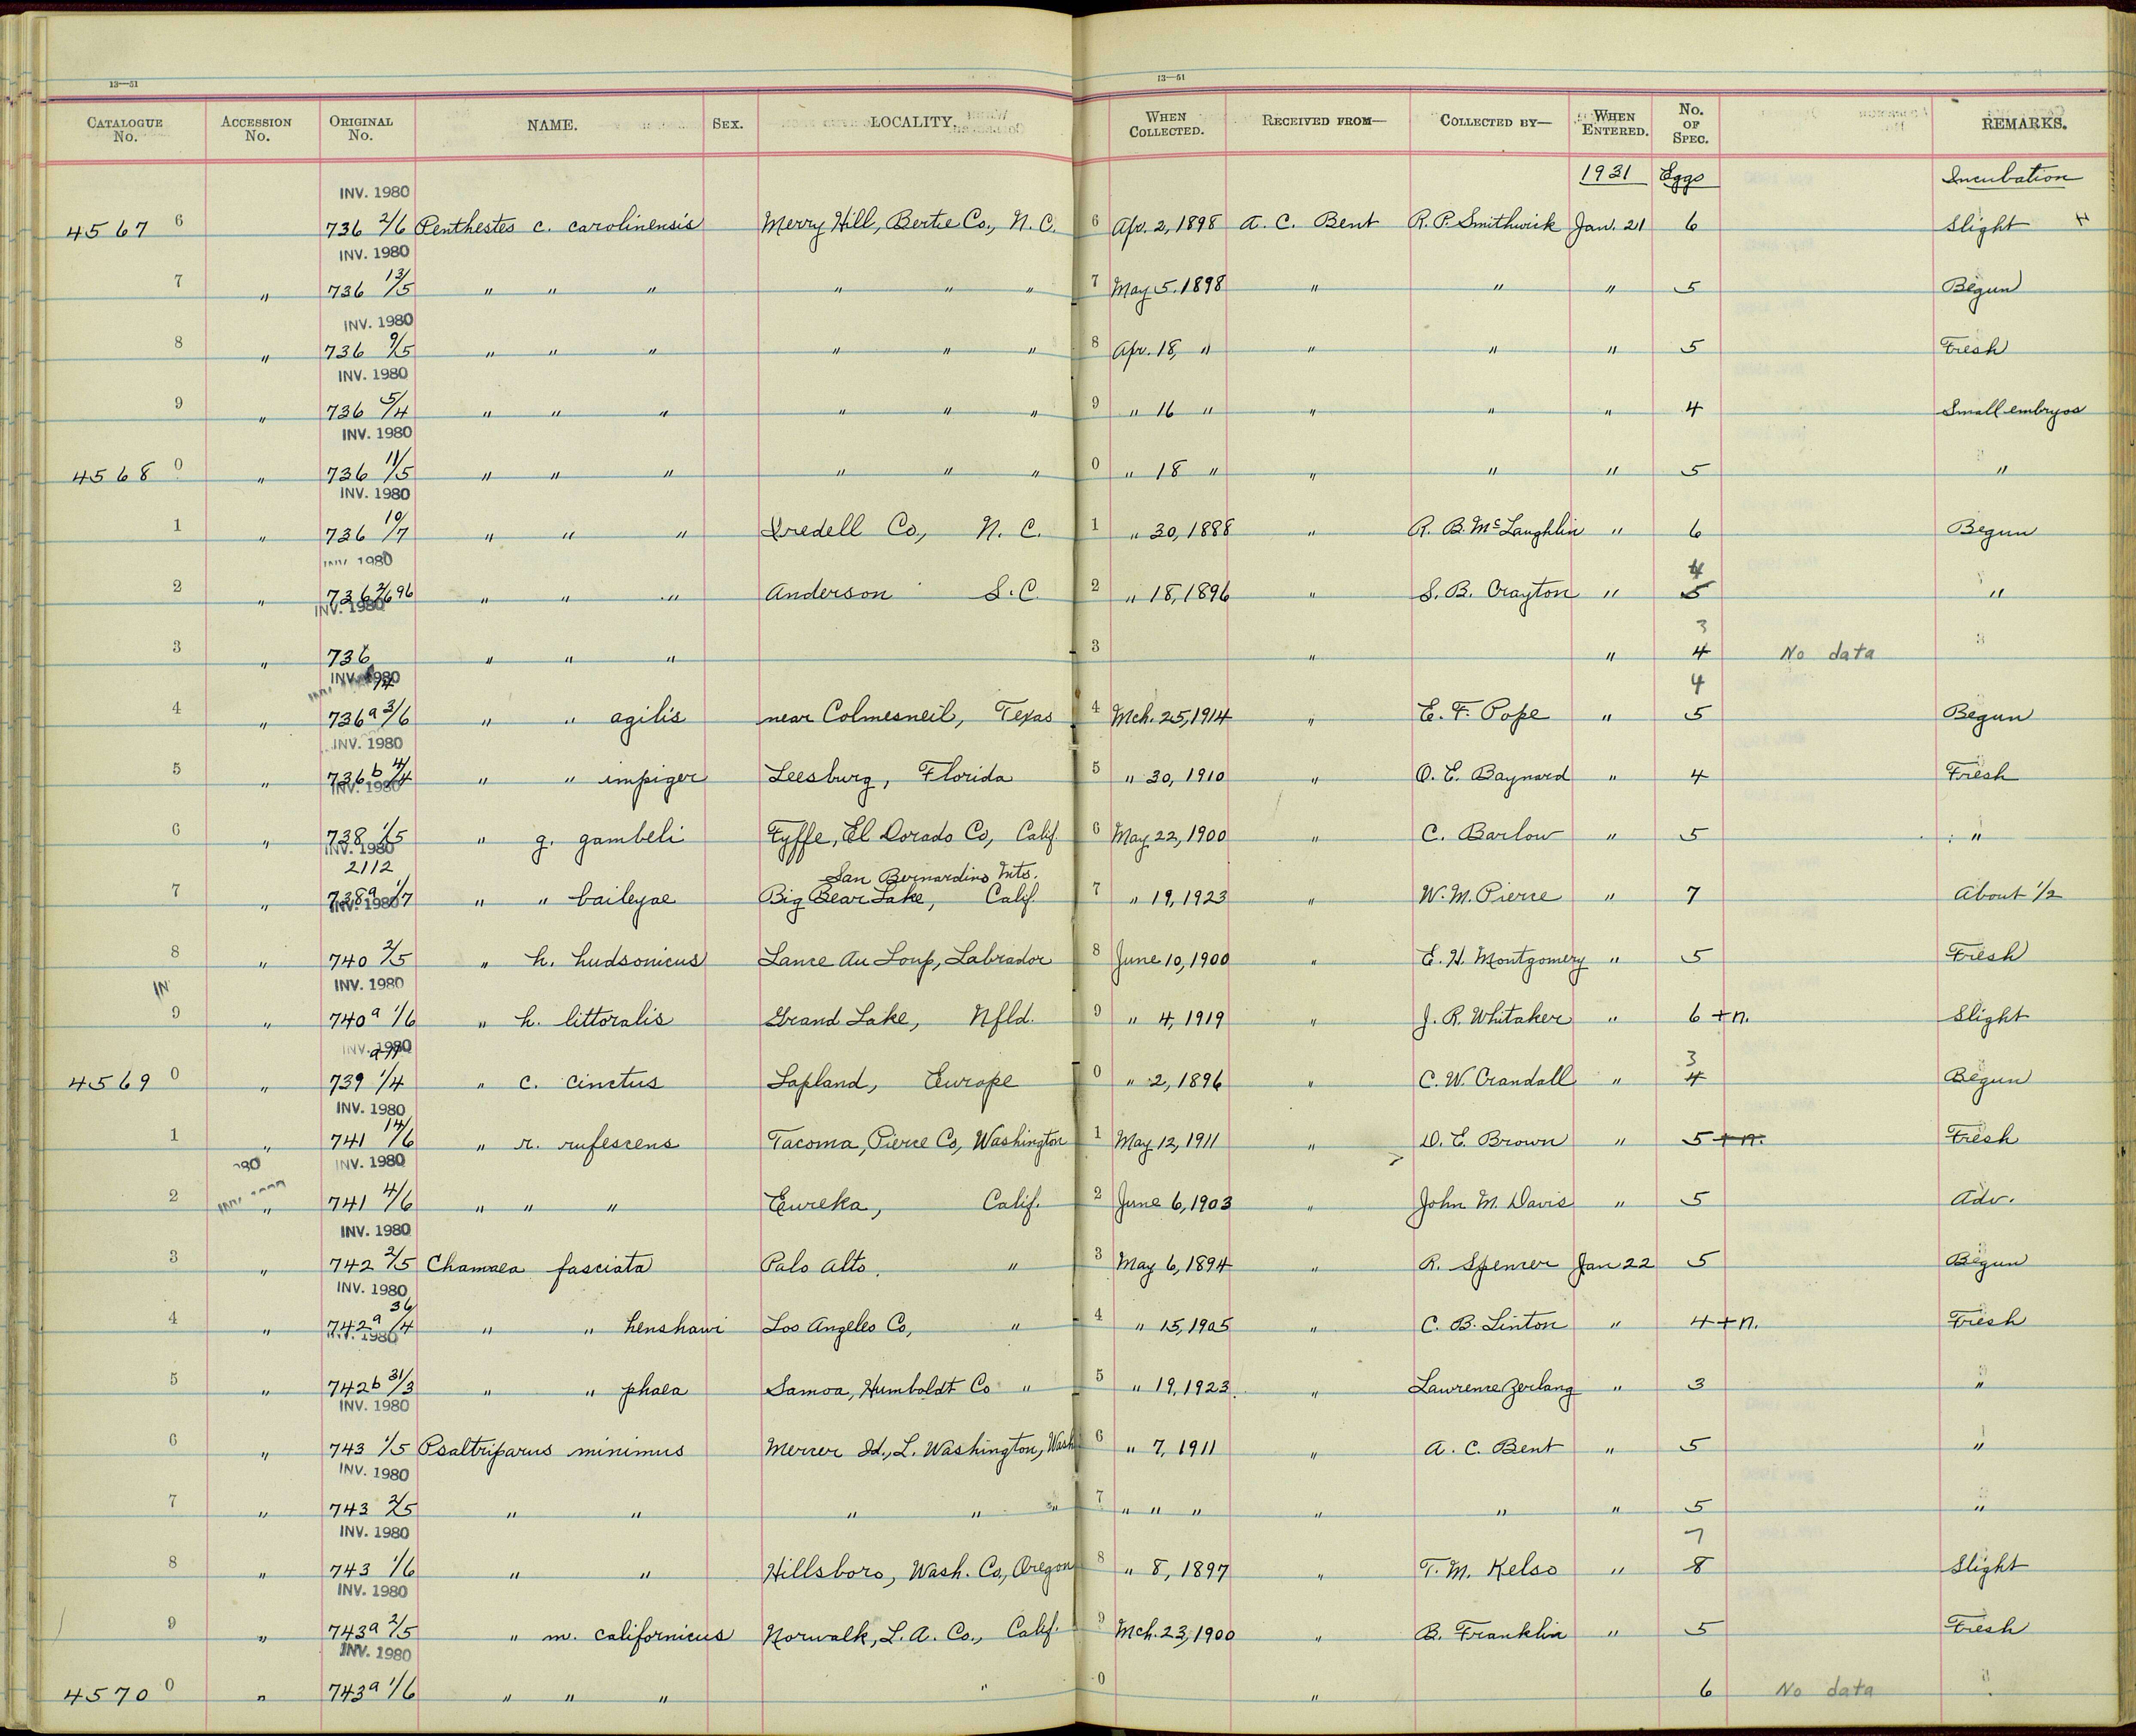 13—51 13—51
CATALOGUE No. ACCESSION No. ORIGINAL No. NAME. SEX. LOCALITY. WHEN COLLECTED. RECEIVED FROM— COLLECTED BY— WHEN ENTERED. No. OF SPEC. REMARKS.
1931 Eggs Incubation
INV. 1980
4567 6 736 2/6 Penthestes c. carolinensis Merry Hill, Bertie Co., N. C. 6 Apr. 2, 1898 A. C. Bent R. P. Smithwick Jan. 21 6 Slight
INV. 1980
7 " 736 13/5 " " " " " " 7 May 5. 1898 " " " 5 Begun
INV. 1980
8 " 736 9/5 " " " " " " 8 Apr. 18, " " " " 5 Fresh
INV. 1980
9 " 736 5/4 " " " " " " 9 " 16 " " " " 4 Small embryos
INV. 1980
4568 0 " 736 11/5 " " " " " " 0 " 18 " " " " 5 "
INV. 1980
1 " 736 10/7 " " " Iredell Co., N. C. 1 " 30, 1888 " R. B. McLaughlin " 6 Begun
INV. 1980
4
2 " 736 2/6 96 " " " Anderson S. C. 2 " 18, 1896 " S. B. Crayton " 5 "
INV. 1980
3
3 " 736 " " " 3 " " 4 No data
INV. 1980
4
4 " 736a 3/6 " " agilis near Colmesneil, Texas 4 Mch. 25, 1914 " E. F. Pope " 5 Begun
INV. 1980
5 " 736b 4/4 " " impiger Leesburg, Florida 5 " 30, 1910 " O. E. Baynard " 4 Fresh
INV. 1980
6 " 738 1/5 " g. gambeli Fyffe, El Dorado Co, Calif. 6 May 22, 1900 " C. Barlow " 5 "
INV. 1980
2112 San Bernardino Mts.
7 " 738a 1/7 " " baileyae Big Bear Lake, Calif. 7 " 19, 1923 " W. M. Pierce " 7 About 1/2
INV. 1980
8 " 740 2/5 " h. hudsonicus Lance Au Loup, Labrador 8 June 10, 1900 " E. H. Montgomery " 5 Fresh
INV. 1980
9 " 740a 1/6 " h. littoralis Grand Lake, Nfld. 9 " 4, 1919 " J. R. Whitaker " 6 + n. Slight
INV. 1980
3
4569 0 " 739 1/4 " c. cinctus Lapland, Europe 0 " 2, 1896 " C. W. Crandall " 4 Begun
INV. 1980
1 " 741 14/6 " r. rufescens Tacoma, Pierce Co, Washington 1 May 12, 1911 " D. E. Brown " 5 + n. Fresh
INV. 1980
2 " 741 4/6 " " " Eureka, Calif. 2 June 6, 1903 " John M. Davis " 5 Adv.
INV. 1980
3 " 742 2/5 Chamaea fasciata Palo Alto, " 3 May 6, 1894 " R. Spencer Jan 22 5 Begun
INV. 1980
4 " 742a 36/4 " " henshawi Los Angeles Co, " 4 " 15, 1905 " C. B. Linton " 4 + n. Fresh
INV. 1980
5 " 742b 31/3 " " phaea Samoa, Humboldt Co " 5 " 19, 1923. " Lawrence Zerlang " 3 "
INV. 1980
6 " 743 1/5 Psaltriparus minimus Mercer Id., L. Washington, Wash 6 " 7, 1911 " A. C. Bent " 5 "
INV. 1980
7 " 743 2/5 " " " " " 7 " " " " " " 5 "
INV. 1980
7
8 " 743 1/6 " " Hillsboro, Wash. Co, Oregon 8 " 8, 1897 " T. M. Kelso " 8 Slight
INV. 1980
9 " 743a 2/5 " m. californicus Norwalk, L. A. Co., Calif. 9 Mch. 23, 1900 " B. Franklin " 5 Fresh
INV. 1980
4570 0 " 743a 1/6 " " " " 0 " 6 No data